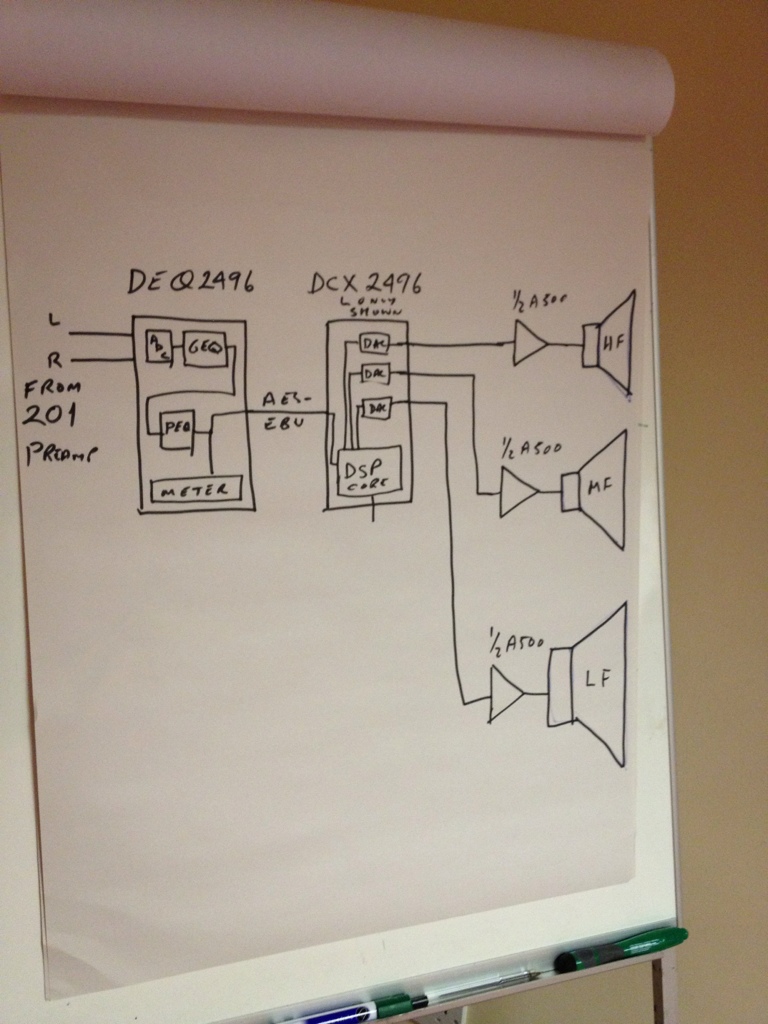 DEQ2496
DCX 2496
L ONLY
SHOWN
L
R
FROM
201
PREAMP
ADC
GEQ
PEQ
METER
AES-
EBU
DAC
DAC
DAC
DSP
CORE
1/2 A500
HF
1/2 A500
MF
1/2 A500
LF